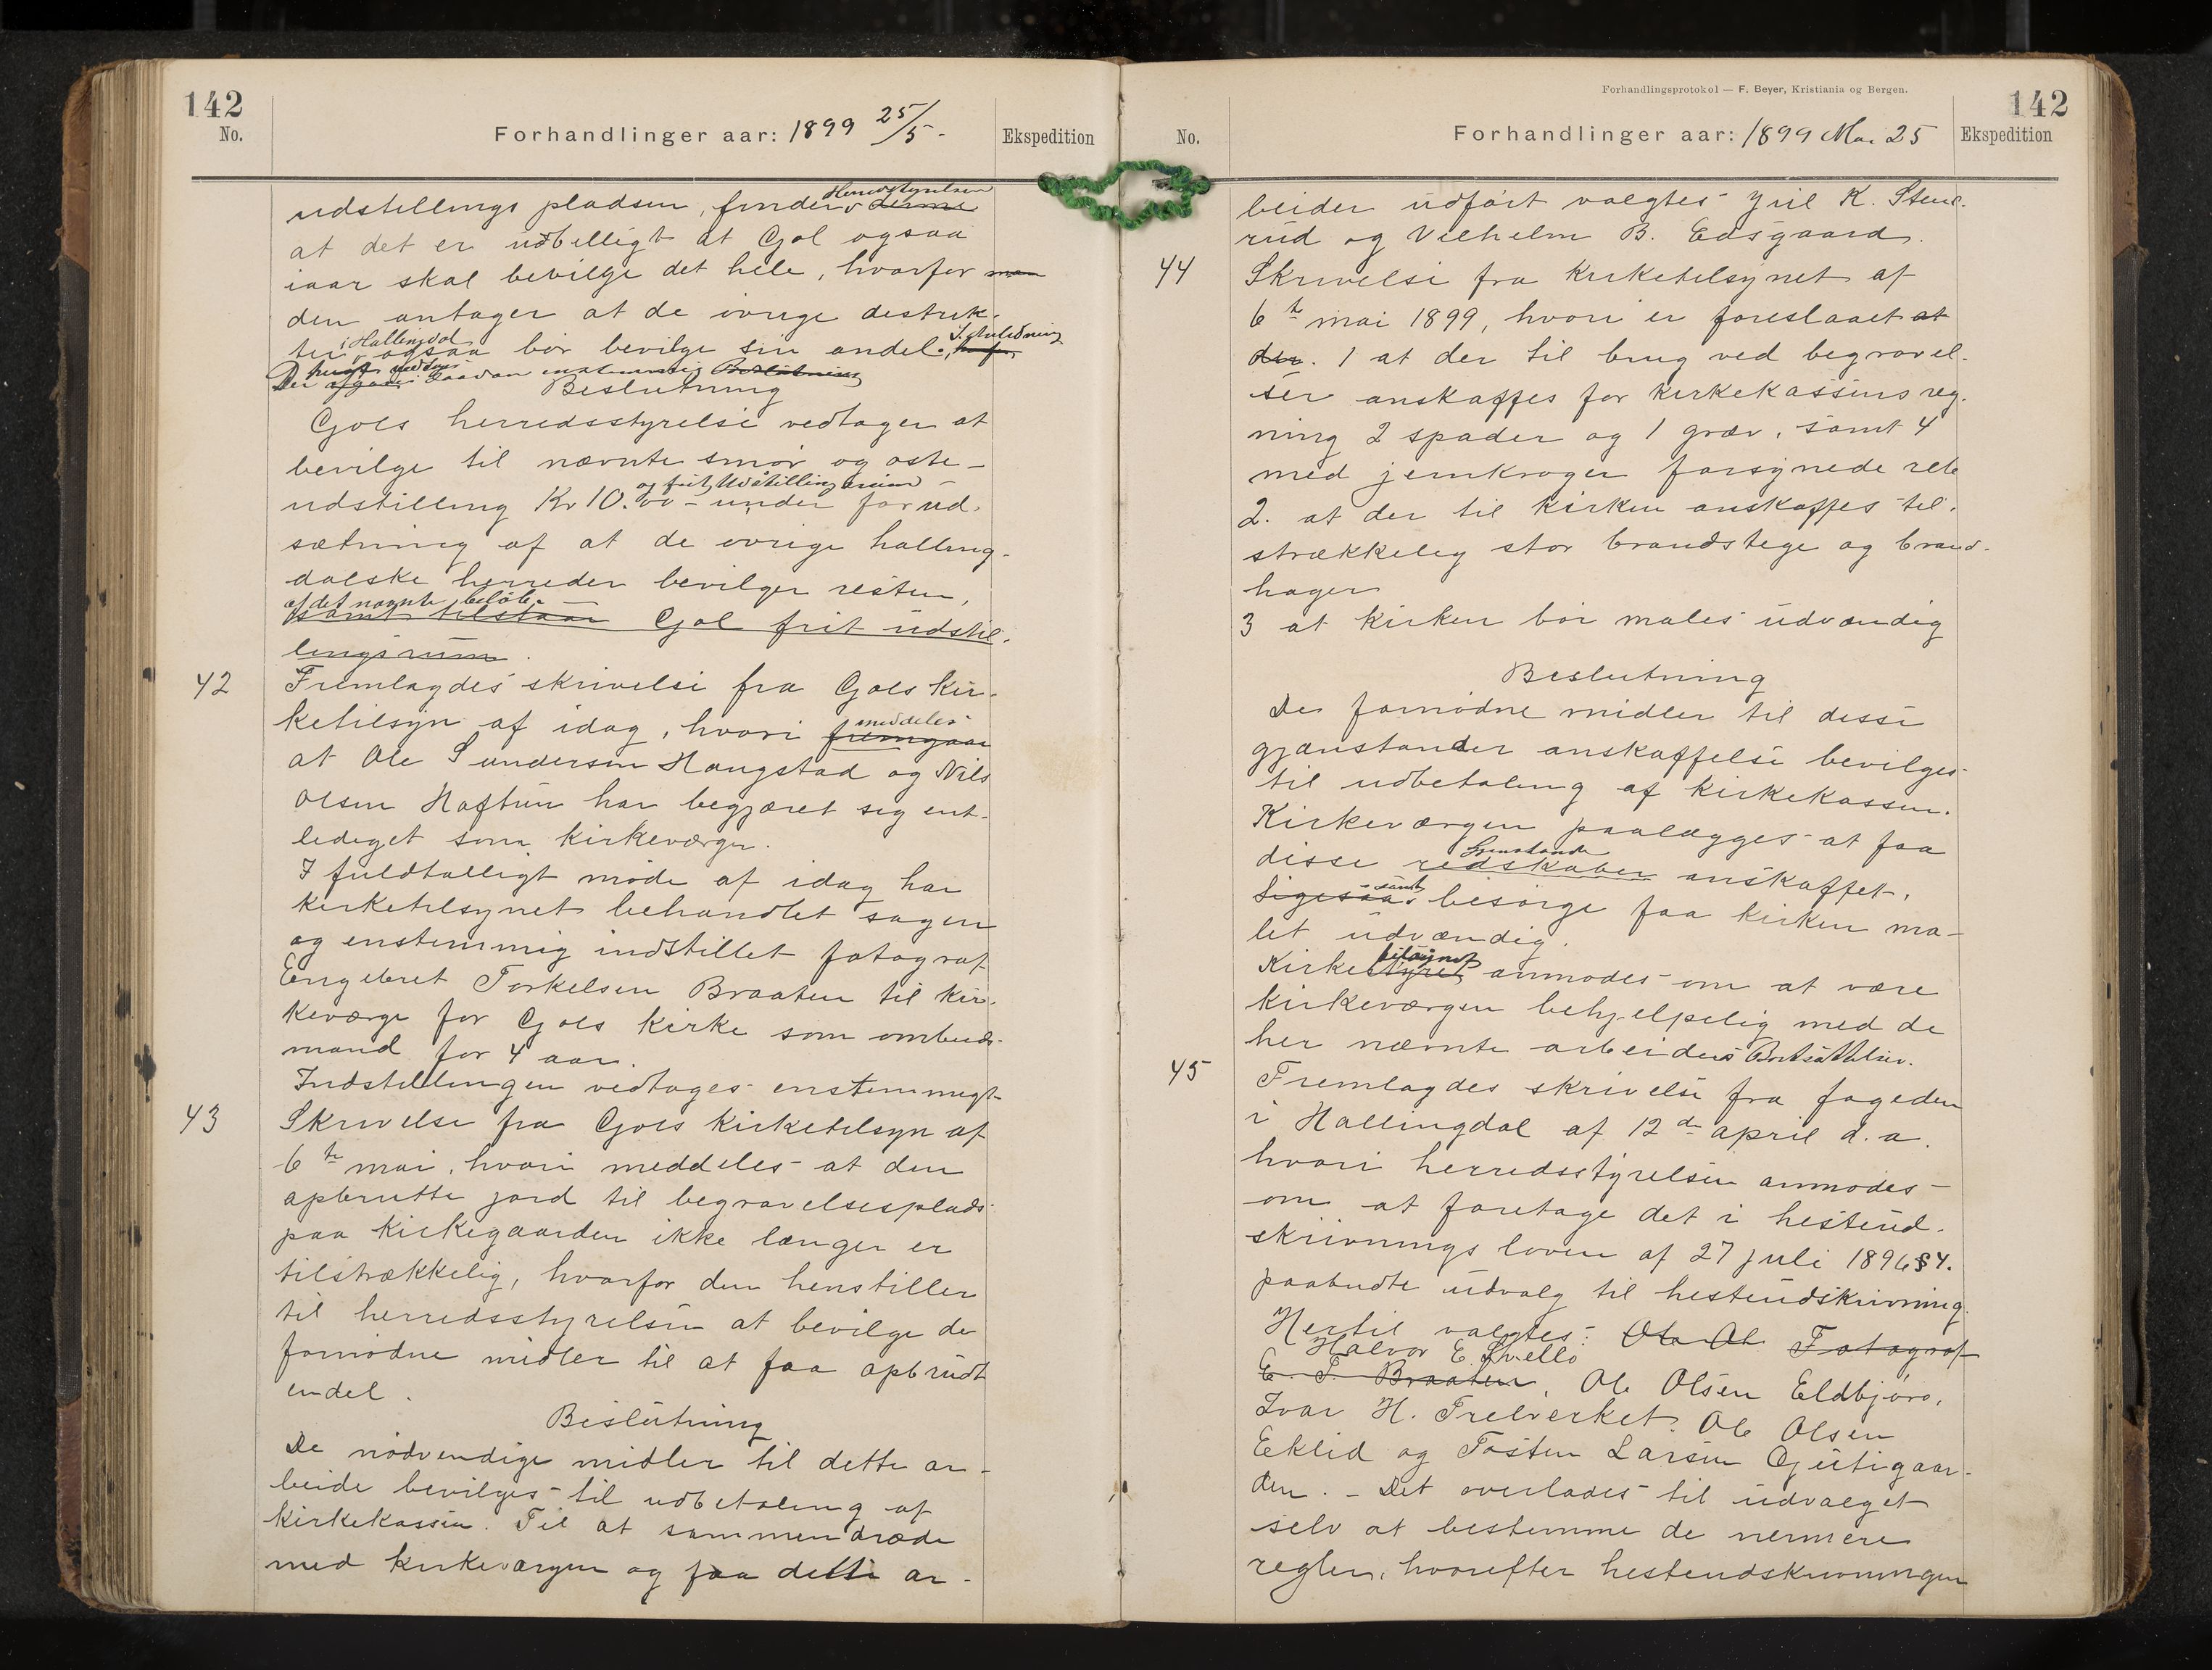 142
No.
Forhandlinger aar: 1899 25/5-
Ekspedition
udstillings pladsen, finder Herredstyrelsen denne
at det er ubilligt at Gol ogsaa
iaar skal bevilge det hele, hvorfor man
den antager at de øvrige distrik-
ter i Hallingdal ogsaa bør bevilge sin andel. I Anledning
Der saadan enstemmig Beslutning
Beslutning
Gols herredsstyrelse vedtager at
bevilge til nævnte smør og oste-
udstilling Kr 10.00 og frit Udstillingsrum - under forud-
sætning af at de øvrige halling-
dalske herreder bevilger resten,
af det nævnte beløb.
samt tilstaar Gol frit udstil-
lingsrum.
42
Fremlagdes skrivelse fra Gols kir-
ketilsyn af idag, hvori meddeles fremgaar
at Ole Sandersen Haugstad og Nils
Olsen Haftun har begjæret sig ent-
lediget som kirkeværger.
I fuldtalligt møde af idag har
kirketilsynet behandlet sagen
og enstemmig indstillet fotograf
Engebret Torkelsen Braaten til kir-
keværge for Gols kirke som ombuds-
mand for 4 aar.
Indstillingen vedtages enstemmigt
43
Skrivelse fra Gols kirketilsyn af
6te mai, hvori meddeles at den
opbrutte jord til begravelsesplads
paa kirkegaarden ikke længer er
tilstrækkelig, hvorfor den henstiller
til herredsstyrelsen at bevilge de
fornødne midler til at faa opbrudt
endel.
Beslutning
De nødvendige midler til dette ar-
beide bevilges til udbetaling af
kirkekassen. Til at sammentræde
med kirkeværgen og faa dette ar-
Forhandlingsprotokol — F. Beyer, Kristiania og Bergen.
142
No.
Forhandlinger aar: 1899 Mai 25
Ekspedition
beider udført valgtes Juil K. Stene-
rud og Vilhelm B. Eidsgaard.
44
Skrivelse fra kirketilsynet af
6te mai 1899, hvori er foreslaaet at
der. 1 at der til brug ved begravel-
ser anskaffes for kirkekassens reg-
ning 2 spader og 1 græv, samt 4
med jernkroger forsynede reb
2. at der til kirken anskaffes til-
strækkelig stor brandstege og brand-
hager
3 at kirken bør males udvændig
Beslutning
De fornødne midler til disse
gjænstander anskaffelse bevilges
til udbetaling af kirkekassen.
Kirkeværgen paalægges at faa
disse Gjenstande redskaber anskaffet,
Ligesaa samt besørge faa kirken ma-
let udvændig.
Kirketilsynet styret anmodes om at være
kirkeværgen behjelpelig med de
her nævnte arbeiders Bortsættelse.
45
Fremlagdes skrivelse fra fogeden
i Hallingdal af 12de april d.a.
hvori herredsstyrelsen anmodes
om at foretage det i hesteud-
skrivnings loven af 27 juli 1896 § 4.
paabudte udvalg til hesteudskrivning.
Hertil valgtes: Ole Ol. Fotograf
Halvor E.
E. T. Braaten, Ole Olsen Eldbjøro,
Ivar H. Trelverket, Ole Olsen
Eklid og Tosten Larsen Gjutigaar-
den. - Det overlades til udvalget
selv at bestemme de nærmere
regler, hvorefter hesteudskrivningen